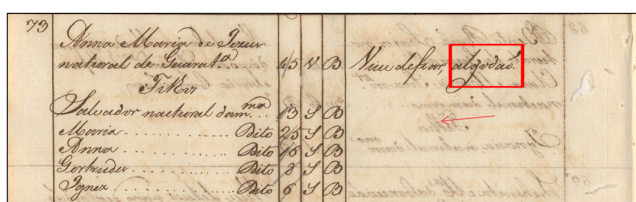 73
Anna Maria de Jezus
natural de Guarat.ª 45 V B Vive de fiar, algodaõ.
Filhos
Salvador natural da m.ma 13 S B
Maria . . . . . . . . . . Dito 25 S B
Anna . . . . . . . . . . Dito 16 S B
Gertrudes . . . . . . . . Dito 8 S B
Ignez . . . . . . . . . . Dito 6 S B